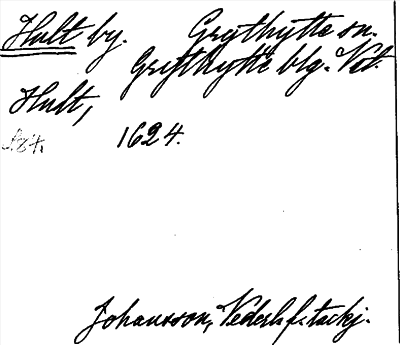 Hult by. Grythytte sn.
Grythytte blg. Vst.
Hult,
1624.
Johansson, Vederlf.:tackj.